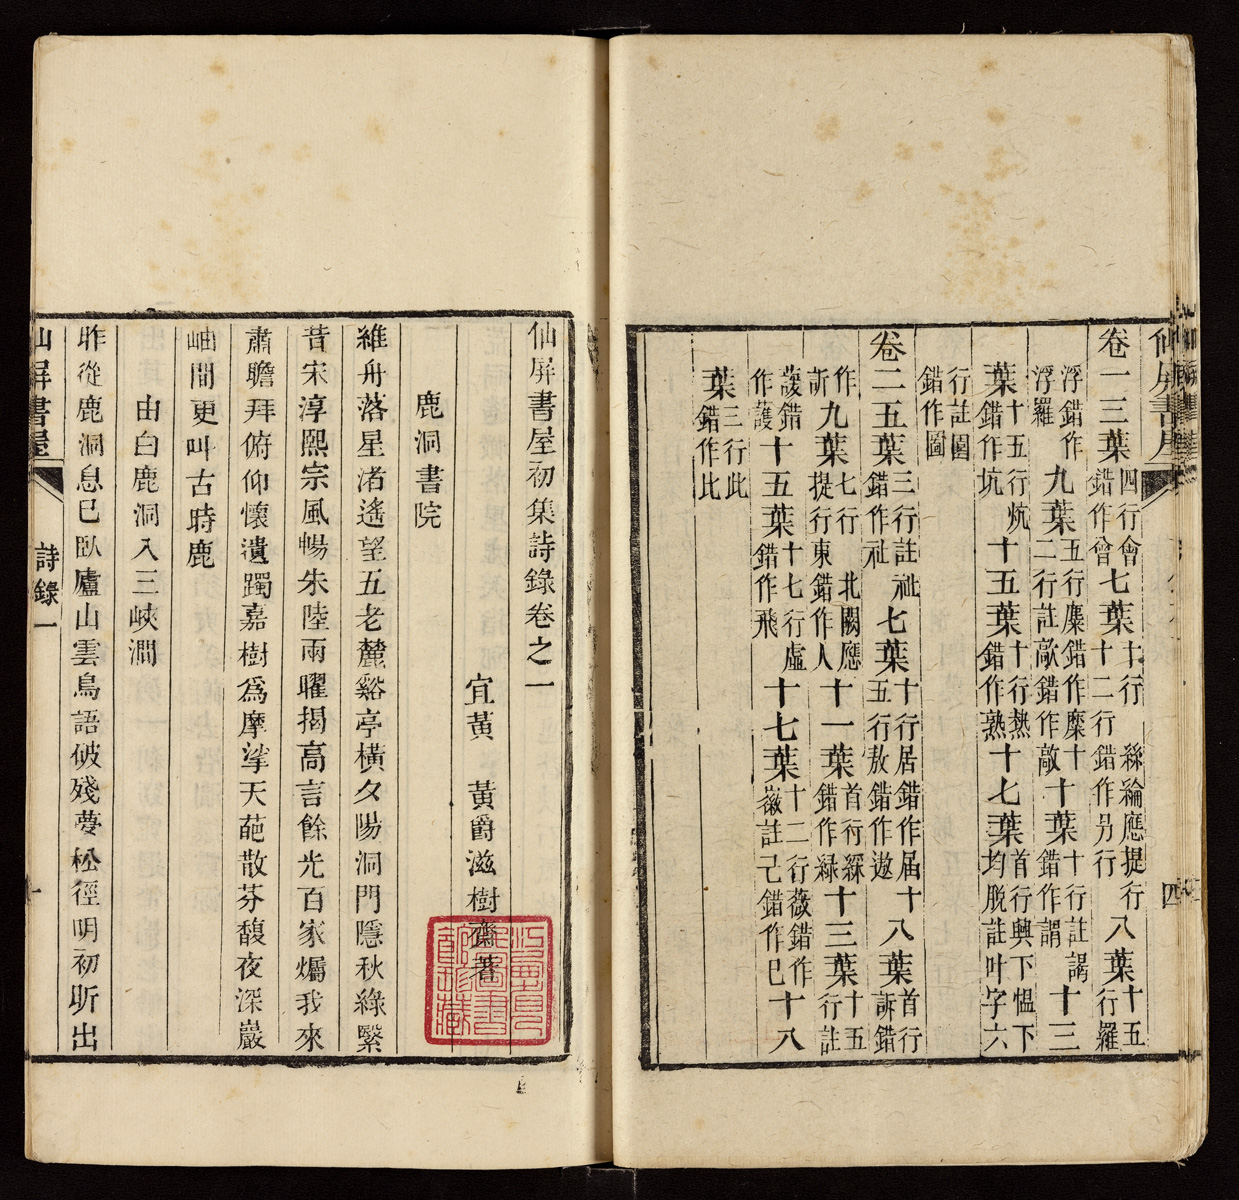 仙屏書屋
四
卷一三葉四行會錯作曾七葉十行
絲綸應提行
十二行錯作另行八葉十五行羅
浮錯作浮羅九葉五行麋錯作糜十二行註敵錯作敵十葉十行註謁錯作謂十三
葉十五行炕錯作坑十五葉十行熱錯作熟十七葉首行興下慍下均脫註叶字六
行註圄錯作圖
卷二五葉三行註祉錯作祉七葉十行居錯作届十五行敖錯作遨八葉首行訴錯
作訢九葉七行北闕應提行東錯作人十一葉首行綵錯作綠十三葉十五行註
護錯作蠖十五葉十七行虛錯作飛十七葉十二行薇錯作薇註己錯作巳十八
葉三行此錯作比
仙屏書屋初集詩錄卷之一
宜黃 黃爵滋樹齋著
鹿洞書院
維舟落星渚遙望五老麓谿亭橫夕陽洞門隱秋綠緊
昔宋淳熙宗風暢朱陸兩曜揭高言餘光百家爥我來
肅瞻拜俯仰懷遺躅嘉樹爲摩挲天葩散芬馥夜深巖
岫間更叫古時鹿
由白鹿洞入三峽澗
昨從鹿洞息已臥廬山雲鳥語破殘夢松徑明初昕出
仙屏書屋
詩錄一
一